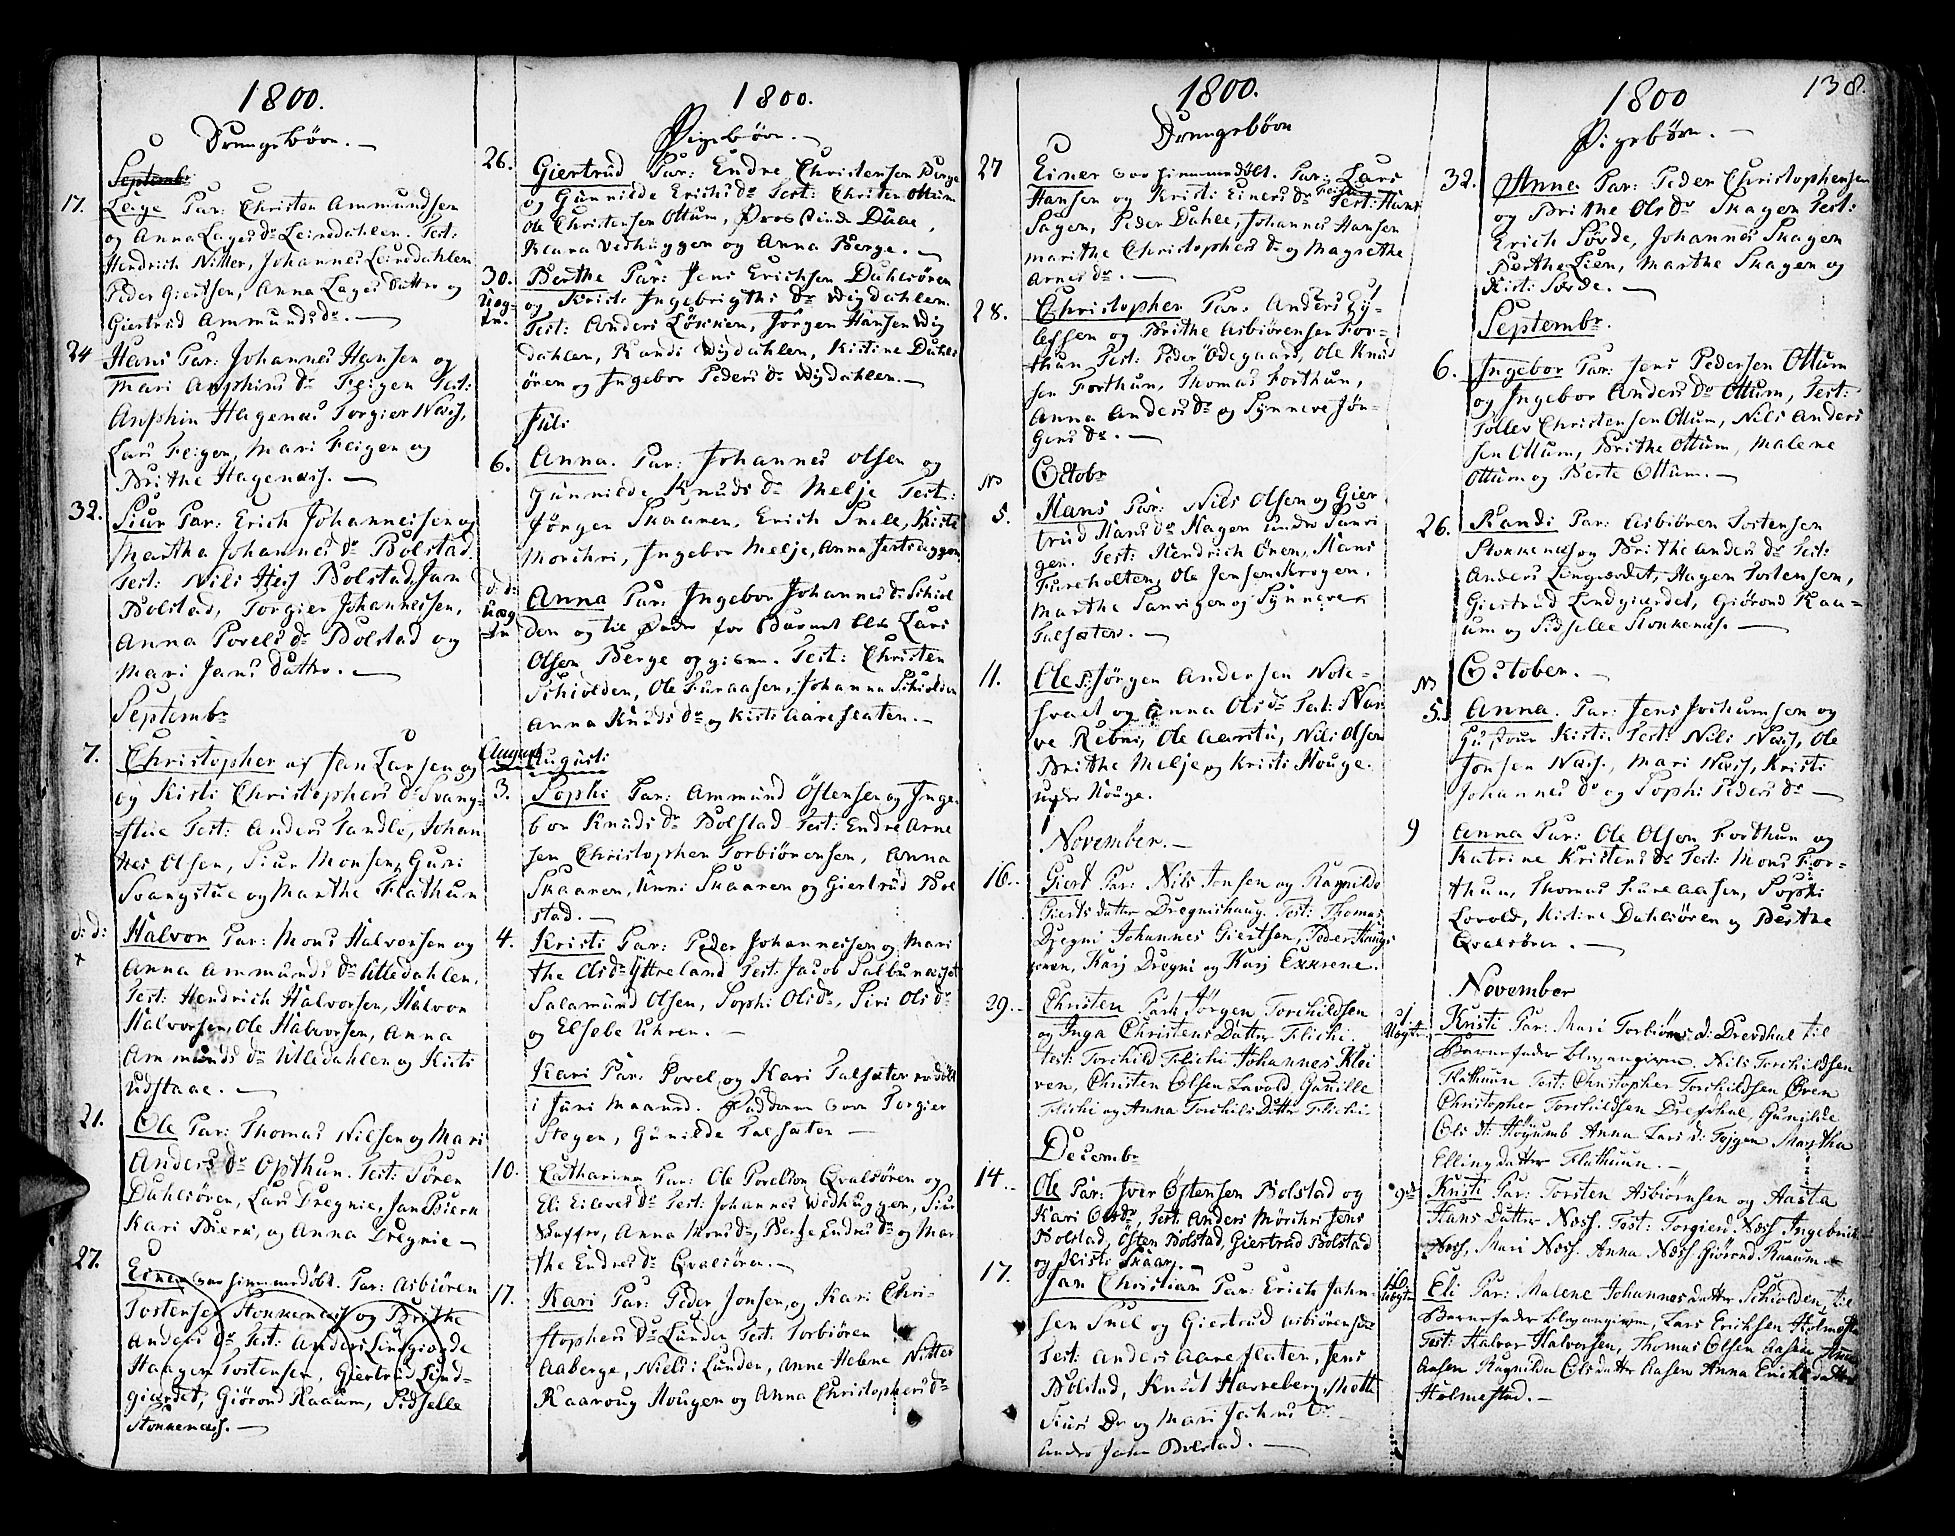 1800.
Drengebörn. —
Septembr
17. Leige Par: Christen Ammundsen
og Anna Lages Dr Leirdahlen. Test:
Hendrich Nitter, Johannes Leirdahlen
Peder Giertsen, Anna Lages Datter og
Giertrud Ammunds Dr. —
24 Hans Par: Johannes Hansen og
Mari Anphins Dr Feigen Test:
Anphin Hagenæs Torgier Næss,
Lars Feigen, Mari Feigen og
Brithe Hagenæs. —
32. Siur Par: Erich Johannessen og
Martha Johannes Dr Bolstad.
Test: Nils Bolstad, Jan
Bolstad, Torgier Johannessen,
Anna Povels Dr Bolstad og
Mari Jens Datter. —
Septembr
7. Christopher af Jan Larsen og
og Kisti Christophers Dr Svang-
stue Test: Anders Sandle, Johan
nes Olsen, Siur Monsen, Guri
Svangstue og Marthe Flathun
d: d: Halvor Par: Mons Halvorsen og
Anna Ammunds Dr Utledahlen.
Test: Hendrich Halvorsen, Halvor
Halvorsen, Ole Halvorsen, Anna
Ammunds Dr Utledahlen og Kisti
Udstaae. —
21. Ole Par: Thomas Nilsen og Mari
Anders Dr Opthun. Test: Sören
Dahlsören, Lars Dregnie, Jan Bierk
Kari Bierk, og Anna Dregnie —
27. Einer var hiemmedöbt. Par: Asbiören
Tostensen Stonkenæs og Brithe
Anders Dr Test: Anders Lingiorde
Haagen Tostensen, Giertrud Lind-
giærdet, Giörond Raaum, Sidselle
Stonkenæs. —
1800.
Pigebörn. —
26. Giertrud Par: Endre Christensen Berge
og Gunnilde Erichs Dr Test: Christen Ottum
Ole Christensen Ottum,
Klara Vedhuggen og Anna Berge. —
30. Berthe Par: Jens Erichsen Dahlsören
og Kristi Ingebrigths Dr Wigdahlen.
Test: Anders Lökken, Jörgen Hansen Wig
dahlen, Randi Wigdahlen, Kistine Dahls
ören og Ingebor Peders Dr Wigdahlen. —
Juli
6. Anna. Par: Johannes Olsen og
Gunnilde Knuds Dr Melje Test:
Jörgen Skaaren, Erich Snele, Kisti
Morchri, Ingebor Melje, Anna
d: d: Anna Par: Ingebor Johannes Dr Schiol
den og til Fader for Barnet blev Lars
Olsen Berge opgiven. Test: Christen
Schiolden, Ole Furaasen, Johanna Schiolden
Anna Knuds Dr og Kisti Aareflaten. —
Augusti
3. Sophi Par: Ammund Östensen og Inge
bor Knuds Dr Bolstad Test: Endre Arne
sen Christopher Torbiörensen, Anna
Skaaren, Unni Skaaren og Giertrud Bol
stad. —
4. Kristi Par: Peder Johannessen og Mari
the Ols Dr Yttreland Test: Jacob
Salamund Olsen, Sophi Ols Dr, Siri Ols Dr
og Elsebe Uhren. —
Kari Par: Povel og Kari Salsæter
i Juni Maaned. Fadderne vare Torgier
Stegen, Gunilde Salsæter —
10. Catharina Par: Ole Povelsen Qvalsören og
Eli Eilevs Dr Test: Johannes Vedhuggen, Siur
Anna Mons Dr, Berthe Endres Dr og Mar
the Endres Dr Qvalsören. —
17. Kari Par: Peder Jonsen og Kari Chri-
stophers Dr Lunden Test: Torbiören
Aaberge, Niels Lunden, Anne Helene Nitter
Kaaroug Hougen og Anna Christophers Dr
1800.
Drengebörn
27 Einer var hiemmedöbt. Par: Lars
Hansen og Kristi Einers Dr Test: Hans
Sagen, Peder Dahle, Johannes Hansen
Marithe Christophers Dr og Magrethe
Arnes Dr. —
28. Christopher Par: Anders Ey-
lefsen og Brithe Asbiörensen For-
thun Test: Peder Ödegaard, Ole Knud
sen Forthun, Thomas Forthun,
Anna Anders Dr og Synneve Jön-
gens Dr. —
Octobr
5. Hans Par: Nils Olsen og Gier
trud Hans Dr Hagen under Sanvi
gen. Test: Hendrich Ören, Hans
Fureholten, Ole Jensen Krogen,
Marthe Sanvigen og Synneve
Salsæter. —
11. Ole Jörgen Andersen Note-
svael og Anna Ols Dr Test: Iver
Nils Olsen
Brithe Melje og Kristi Houge.
Houge.
November. —
16. Giert Par: Nils Jensen og Ragnilde
Gierts datter Dregnishaug. Test: Thomas
Dregni Johannes Giertsen, Peder Haugs
ören, Kari Dregni og Kari Eckrene. —
29. Christen Par: Jörgen Torchildsen
og Inga Christens Datter Fliche
Test: Torchild Fliche Johannes Klei
ven, Christen Olsen Lavold Gunille
Fliche og Anna Torchilds Datter Fliche
Decembr
14. Ole Par: Iver Östensen Bolstad og
Kari Ols Dr, Test: Anders Mörchri Jens
Bolstad, Östen Bolstad, Giertrud Bolstad
og Kisti Skaar. —
17. Jan Christian Par: Erich Jahn-
sen Snel og Giertrud Asbiörensdr
Test: Anders Aareflaten, Jens
Bolstad, Knud Harreberg,
Siurs Dr og Mari Jahns Dr
Jahn Bolstad. —
1800
138.
Pigebörn. —
32. Anne Par: Peder Christophersen
og Brithe Ols Dr Skagen Test:
Erich Sövde, Johannes Skagen
Berthe Lien, Marthe Skagen og
Kisti Sövde. —
Septembr.
6. Ingebor Par: Jens Pedersen Ottum
og Ingebor Anders Dr Ottum, Test:
Tollev Christensen Ottum, Nils Anders
sen Ottum, Brithe Ottum, Malene
Ottum og Berte Ottum. —
26. Randi Par: Asbiören Tostensen
Stonkenæs og Brithe Anders Dr Test:
Anders Hagen Tostensen,
Giertrud Lindgiærdet, Giörond Raa-
um og Sidselle Stonkenæs. —
October. —
5. Anna. Par: Jens Jochumsen og
Hustrue Kisti Test: Nils Næss, Ole
Jonsen Næss, Mari Næss, Kristi
Johannes Dr og Sophi Peders Dr —
9 Anna Par: Ole Olsen Forthun og
Katrine Kristens Dr Test: Mons For-
thun, Thomas Fureaasen, Sophi
Lovold, Kistine Dahlsören og Berthe
Qvalsören. —
November
Kristi Par: Mari Torbiörns d: til
Barnefader blev angiven Nils Torchildsen
Flathuun Test: Christopher Torchildsen
Christopher Torchildsen Gunilde
Ols d: Anna Lars d: Martha
Ellings datter Flathuun. —
9de Kristi Par: Torsten Asbiörnsen og Aasta
Hans Datter Næss. Test: Torgierd Næss Ingebrik
Næss, Mari Næss. Anna Næss Giörond Raaum —
16 Eli Par: Malene Johannes datter Schiolden, til
Barnefader blev angiven, Lars Eriksen Holmestad
Test: Halvor Halvorsen, Thomas Olsen Aasen
Aasen Ragnilda Olsdatter Aasen Anna Eriksdatter
Holmestad. —